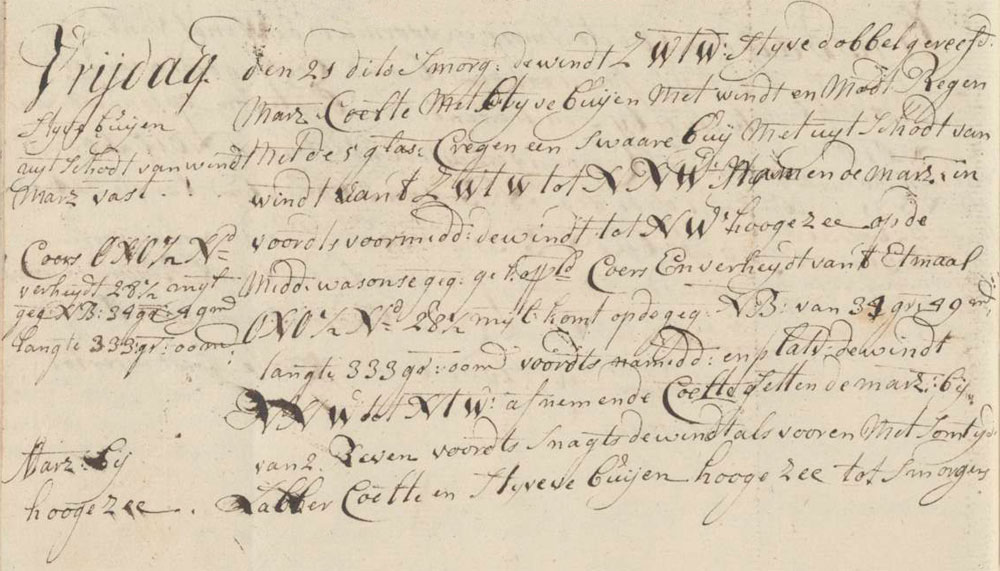 Vrijdag
Styve buijen
uijt schodt van windt
Marz vast.
Coers ONO½ Nd
verheydt 28½ myl
geg: NB: 34 gr: 49 md
langte 333: gr: 00 md
Marz: bij
hooge zee.
den 25 dito Smorg: de windt ZWTW: Styve dobbel gereefd:
Marz: Coelte Met Styve buijen Met windt en Modt Regen
Met de 5 glas: Cregen een Swaare buij Met uyt Schodt van
windt van't ZWTW tot NNWd: Namen de marz: in
voordts voormidd: de windt tot NWd: hooge zee op de
Midd: was onse geg: Coers En verheydt van't Etmaal
ONO½ Nd: 28½ myl: komt op de geg: NB: van 34 gr: 49 md:
langte 333 gr: 00 md voordts namidd: en platv: de windt
NNW tot NTW: af nemende Coelte Setten de marz: bij
van 2. Reven voordts Snagts de windt als vooren Met Somtyds
Labber Coelte en Styve buijen hooge zee tot Smorgens